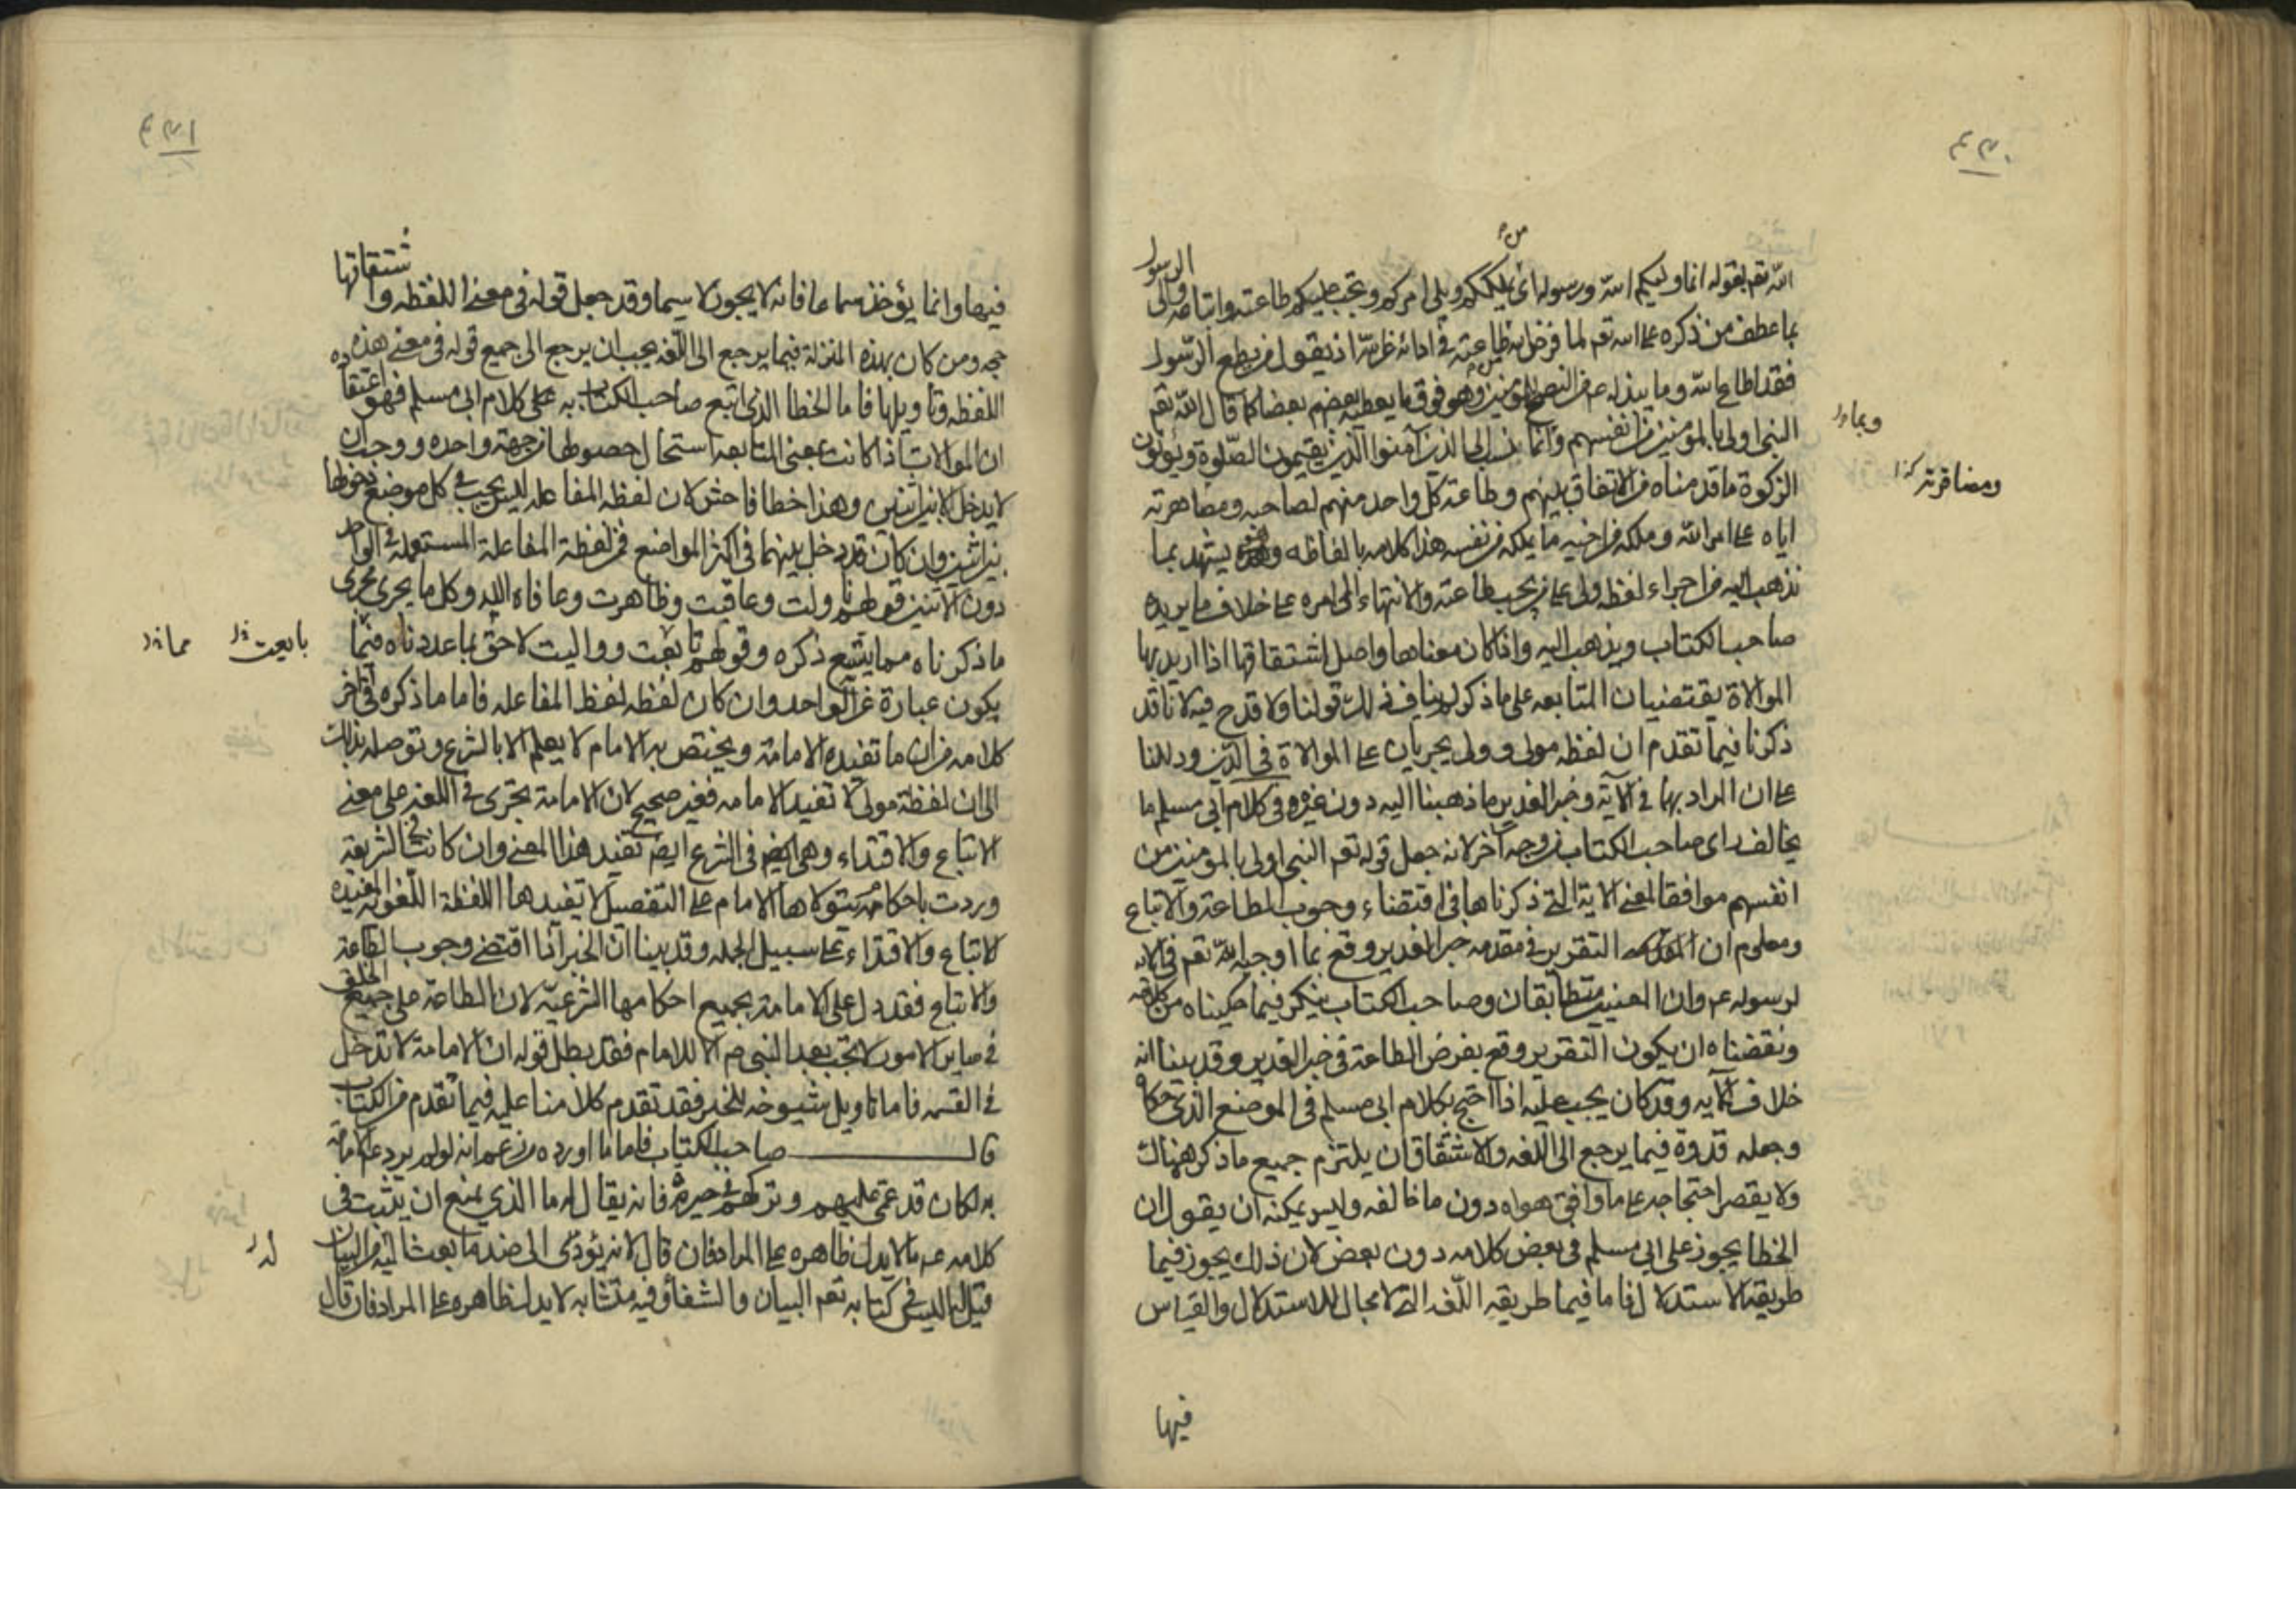 من
الله تعم بقوله انما وليكم الله ورسوله اى يملككم ويلى امركم وتجب عليكم طاعته واتباعه والى الرسول
بما عطف من ذكره على اسمه تعم لما فرض من طاعته فى ادائه عن الله اذ يقول من يطع الرسول
فقد اطاع الله وما يبذله عم من النصح للمؤمنين وهو فوق ما يعطيه بعضهم بعضا كما قال الله تعم
النبى اولى بالمؤمنين من انفسهم وانما نسب الى الذين آمنوا الذين يقيمون الصلوة ويؤتون
وبما
الزكوة ما قدمناه من الاتفاق بينهم وطاعة كل واحد منهم لصاحبه ومضاهرته
ومضافرته كذا
اياه على امر الله وملكه من اخيه ما يملكه من نفسه هذا كلامه بالفاظه و يشهد بما
نذهب اليه من اجراء لفظه ولى على من يجب طاعته والانتهاء الى امره على خلاف ما يريده
صاحب الكتاب ويذهب اليه واذا كان معناها واصل اشتقاقها اذا اريد بها
الموالاة يقتضيان المتابعه على ما ذكر لم يناف ذلك قولنا ولا قدح فيه لانا قد
ذكرنا فيما تقدم ان لفظه مولى وولى يجريان على الموالاة فى الدين ودللنا
على ان المراد بهما فى الآية وخبر الغدير ما ذهبنا اليه دون غيره وفى كلام ابى مسلم ما
يخالف راى صاحب الكتاب من وجه آخر لانه جعل قوله تعم النبى اولى بالمومنين من
انفسهم موافقا لمعنى الاية التى ذكرناها فى اقتضاء وجوب الطاعة والاتباع
ومعلوم ان التقرير فى مقدمه خبر الغدير وقع بما اوجبه الله تعم فى الايه
لرسوله عم وان المعنيين متطابقان وصاحب الكتاب ينكر فيما حكيناه من كلامه
ونقضناه ان يكون التقرير وقع بفرض الطاعة فى خبر الغدير وقد بينا انه
خلاف الآيه وقد كان يجب عليه اذا احتج بكلام ابى مسلم فى الموضع الذى حكاه
وجعله قدوة فيما يرجع الى اللغه والاشتقاق ان يلتزم جميع ما ذكره هناك
ولا يقصر احتجاجه على ما وافق هواه دون ما خالفه وليس يمكنه ان يقول ان
الخطا يجوز على ابى مسلم فى بعض كلامه دون بعض لان ذلك يجوز فيما
طريقه الاستدلال فاما فيما طريقه اللغه التى لا مجال للاستدلال والقياس
فيها
فيها وانما يؤخذ سماعا فانه لا يجوز لا سيما وقد جعل قوله فى معنى اللفظه واشتقاقها
حجه ومن كان بهذه المنزلة فيما يرجع الى اللغه يجب ان يرجع الى جميع قوله فى معنى هذه
اللفظه وتاويلها فاما الخطا الذى اتبع صاحب الكتاب به على كلام ابى مسلم فهو اعتقاده
ان الموالات اذا كانت بمعنى المتابعه استحال حصولها من جهة واحده ووجب ان
لا يدخل الا بين اثنين وهذا خطا فاحش لان لفظه المفاعله ليس يجب فى كل موضع دخولها
بين اثنين وان كان قد دخل بينهما فى اكثر المواضع فمن لفظة المفاعلة المستعمله فى الواحد
دون الاثنين قولهم ناولت وعاقبت وظاهرت وعافاه الله وكل ما يجرى مجرى
ما ذكرناه مما يتسع ذكره وقولهم تابعت وواليت لاحق بما عددناه فيما
بايعت
مما
يكون عبارة عن الواحد وان كان لفظه لفظ المفاعله فاما ما ذكره فى آخر
كلامه من ان ما تفيده الامامة ويختص به الامام لا يعلم الا بالشرع وتوصله بذلك
الى ان لفظة مولى لا تفيد الامامه فغير صحيح لان الامامة تجرى فى اللغه على معنى
الاتباع والاقتداء وهى فى الشرع ايضم تفيد هذا المعنى وان كانت الشريعه
وردت باحكام يتولاها الامام على التفصيل لا تفيدها اللفظة اللغويه المفيده
لاتباع والاقتداء على سبيل الجمله وقد بينا ان الخبر اذا اقتضى وجوب الطاعة
والاتباع فقد دل على الامامة بجميع احكامها الشرعيه لان الطاعة على جميع الخلق
فى ساير الامور لا تجب بعد النبى ص الا للامام فقد بطل قوله ان الامامة لا تدخل
فى القسمه فاما تاويل شيوخه للخبر فقد تقدم كلامنا عليه فيما تقدم من الكتاب
قال صاحب الكتاب فاما ما اورده من زعم انه لو لم يرد على الامامة
به لكان قد عمى عليهم وتركهم فى حيرة فانه يقال له ما الذى يمنع ان يثبت فى
كلامه عم ما لا يدل ظاهره على المراد فان قال لانه يؤدى الى ضد ما بعث اليه من البيان
له
قيل له اليس فى كتابه تعم البيان والشفاؤ وفيه متشابه لا يدل ظاهره على المراد فان قال